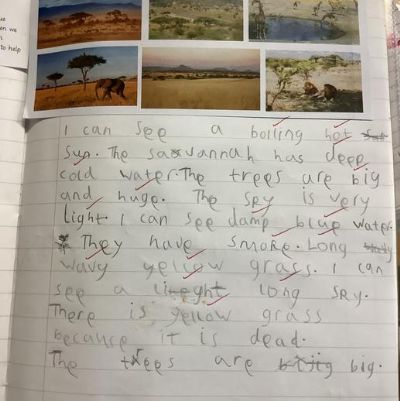 to help
I can see a boiling hot
Sun. The savannah has deep
cold water. The trees are big
and huge. The sey is very
light. I can see damp blue water.
They have smoke. Long
wavy yellow grass. I can
see a light long sey.
There is yellow grass
because it is dead.
The trees are big.